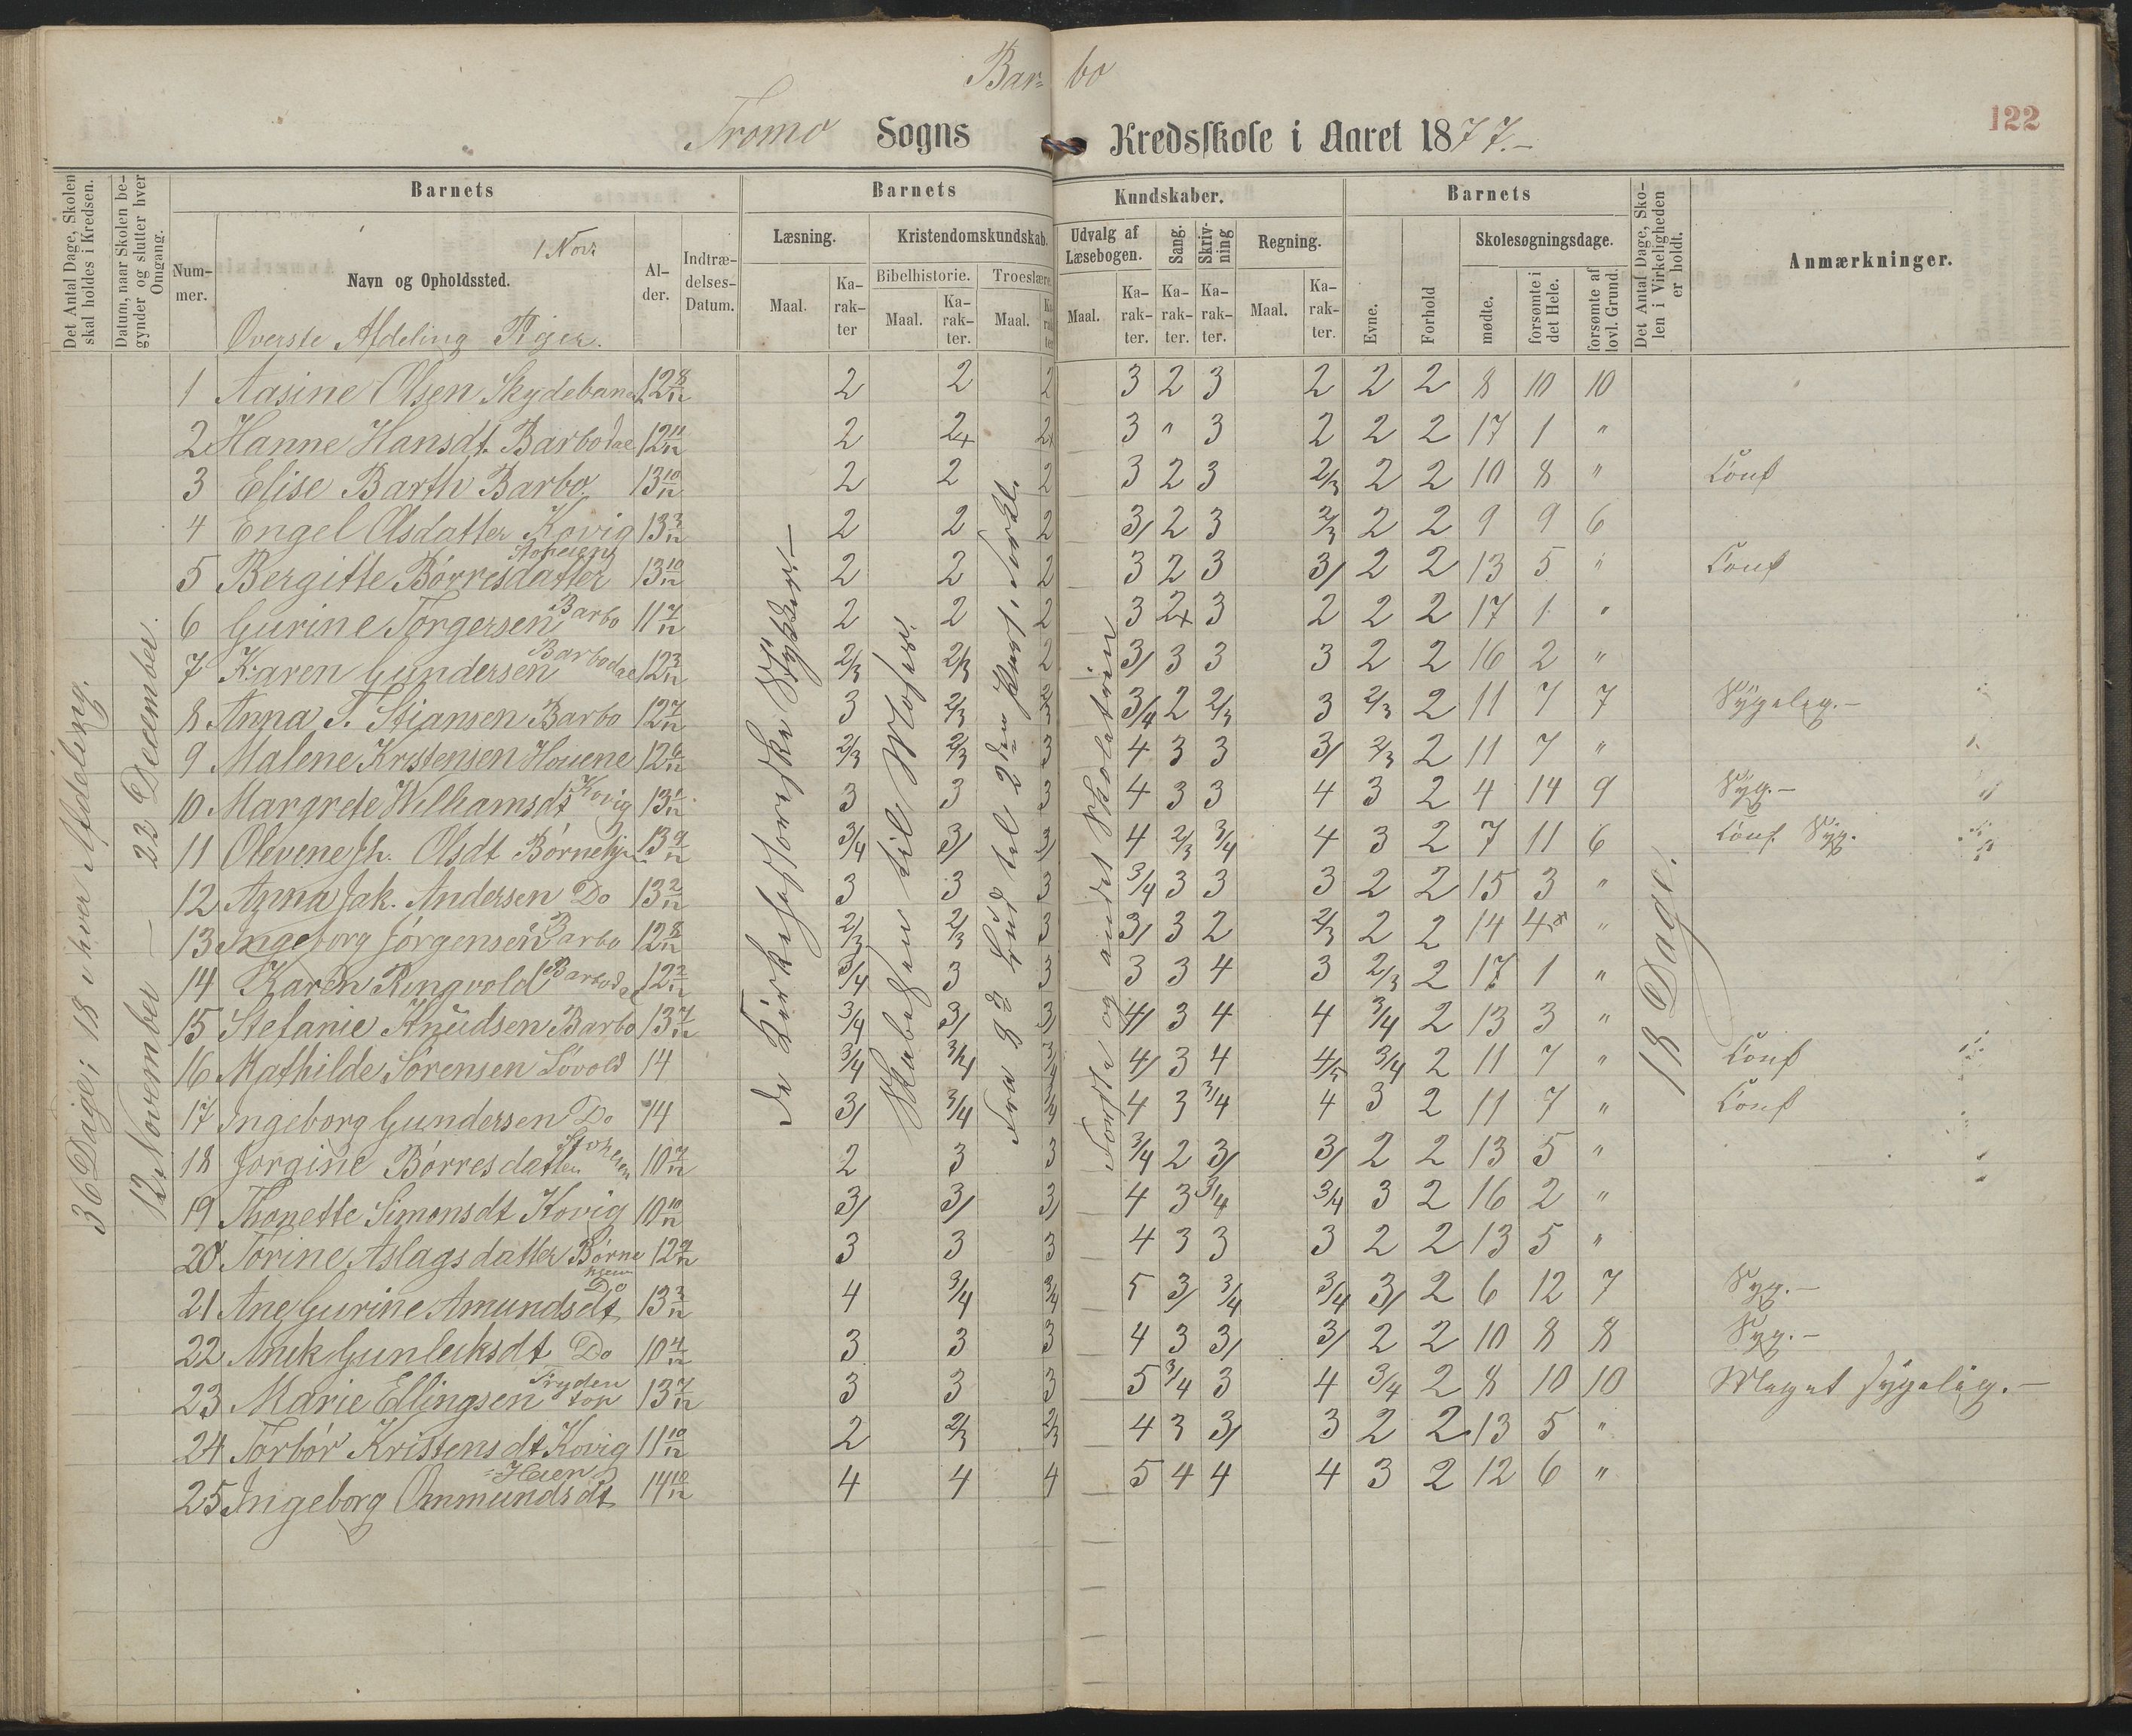 Bar- bo
Tromø Sogns Kredsskole i Aaret 1877.-
122
Det Antal Dage, Skolen skal holdes i Kredsen.
Datum, naar Skolen begynder og slutter hver Omgang.
Barnets
Nummer.
Navn og Opholdssted.
1 Novr
Øverste Afdeling Piger.
Alder.
Indtrædelses-Datum.
Barnets Kundskaber.
Læsning.
Maal. Karakter
Kristendomskundskab.
Bibelhistorie. Troeslære.
Maal. Karakter. Maal. Karakter
Udvalg af Læsebogen.
Maal. Karakter.
Sang. Karakter.
Skrivning Karakter.
Regning.
Maal. Karakter.
Barnets
Evne. Forhold
Skolesøgningsdage.
mødte. forsømte i det Hele. forsømte af lovl. Grund.
Det Antal Dage, Skolen i Virkeligheden er holdt.
Anmærkninger.
36 Dage; 18 i hver Afdeling.
12 November — 22 December.
de Kirkehistoriske Stykker.—
Skabelsen til Moses.
Fra 8de Bud til 2den Part.
Første og andet Skoletrin
18 Dage.
1 Aasine Olsen Skydebanen 12 8/12 2 2 2 3 2 3 2 2 2 8 10 10
2 Hanne Hansdt. Barbodal 12 11/12 2 2+ 2+ 3 " 3 2 2 2 17 1 "
3 Elise Barth Barbo. 13 10/12 2 2 2 3 2 3 2/3 2 2 10 8 " Conf
4 Engel Olsdatter Kovig 13 3/12 2 2 2 3/ 2 3 2/3 2 2 9 9 6
5 Bergitte Børresdatter 13 10/12 2 2 2 3 2 3 3/ 2 2 13 5 " Conf
6 Gurine Torgersen Barbo 11 7/12 2 2 2 3 2+ 3 2 2 2 17 1 "
7 Karen Gundersen Barbodal 12 3/12 2/3 2/3 2 3/ 3 3 3 2 2 16 2 "
8 Anna T. Stiansen Barbo 12 7/12 3 2/3 2/3 3/4 2 2/3 3 2/3 2 11 7 7 Sygelig.-
9 Malene Kristensen Houene 12 6/12 2/3 2/3 3 4 3 3 3/ 2/3 2 11 7 "
10 Margrete Williamsdt Kovig 13 1/12 3 3 3 4 3 3 4 3 2 4 14 9 Syg.-
11 Olevine Jh. Olsdt Børnehjem 13 9/12 3/4 3/ 3/ 4 2/3 3/4 4 3 2 7 11 6 Conf. Syg.
12 Anna Jak. Andersen Do 13 2/12 3 3 3 3/4 3 3 3 2 2 15 3 "
13 Ingeborg Jørgensen Barbo 12 8/12 2/3 2/3 3 3/ 3 2 2/3 2 2 14 4 "
14 Karen Ringvold Barbodal 12 2/12 3/4 3 3 3 3 4 3 2/3 2 17 1 "
15 Stefanie Knudsen Barbo 13 7/12 3/4 3/ 3/ 4/ 3 4 4 3/4 2 13 3 "
16 Mathilde Sørensen Løvold 14 3/4 3/4 3/4 4/ 3 4 4/5 3/4 2 11 7 " Conf
17 Ingeborg Gundersen Do 14 3/ 3/4 3/4 4 3 3/4 4 3 2 11 7 " Conf
18 Jørgine Børresdatter 10 2/12 2 3 3 3/4 2 3/ 3/ 2 2 13 5 "
19 Thonette Simonsdt Kovig 10 10/12 3/ 3/ 3/ 4 3 3/4 3/4 3 2 16 2 "
20 Torine Aslagsdatter Børnehjem 12 9/12 3 3 3 4 3 3 3 2 2 13 5 "
21 Ane Gurine Amundsdt Do 13 3/12 4 3/4 3/4 5 3/ 3/4 3/4 3/ 2 6 12 7 Syg.-
22 Anek Gunleiksdt Do 10 4/12 3 3 3 4 3 3/ 3/ 2 2 10 8 8 Syg.-
23 Marie Ellingsen Frydentop 13 7/12 3 3 3 5 3/4 3 4 3/4 2 8 10 10 Meget sygelig.-
24 Torbør Kristensdt Kovig 11 10/12 2 2/3 2/3 4 3 3/ 3 2 2 13 5 "
25 Ingeborg Ommundsdt Heien 14 10/12 4 4 4 5 4 4 4 3 2 12 6 "